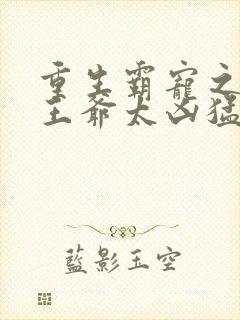 重生霸寵之
王爺太凶猛
藍影玉空